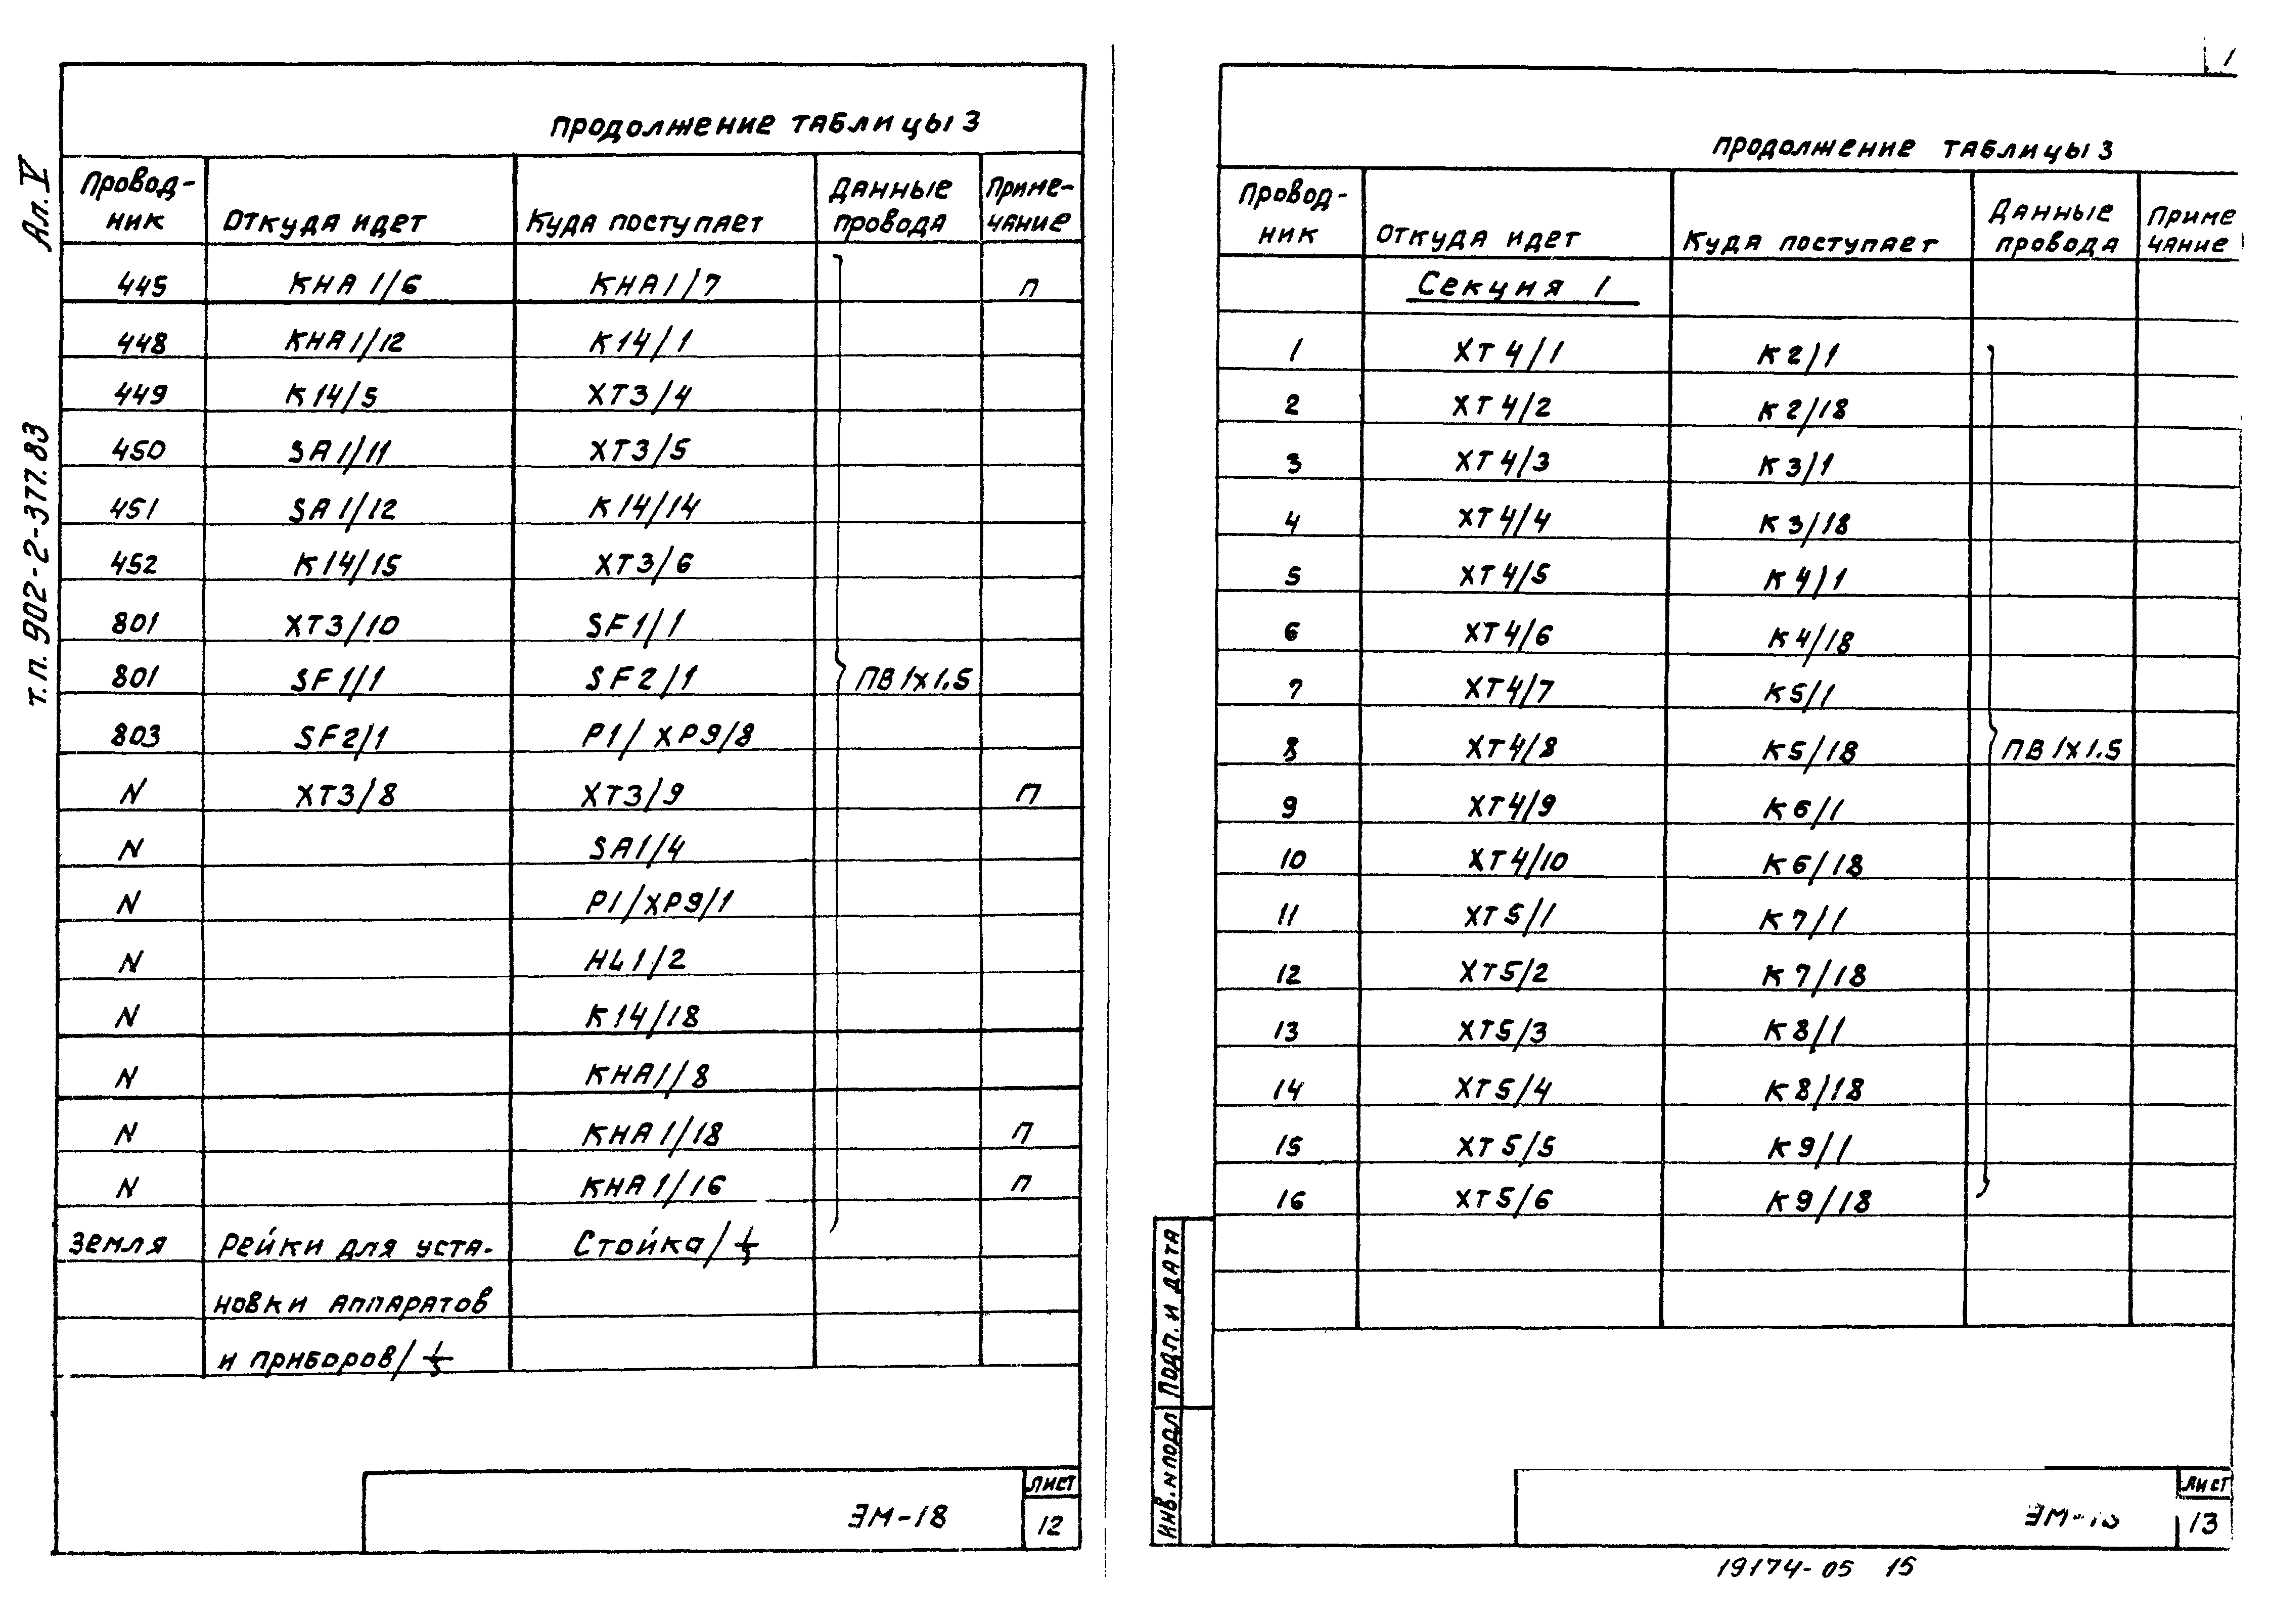 Ал. V
т.п. 902-2-377.83
продолжение таблицы 3
Провод-ник | Откуда идет | Куда поступает | Данные провода | Приме-чание
445 | КНА 1/6 | КНА1/7 | | п
448 | КНА 1/12 | К14/1
449 | К14/5 | ХТ3/4
450 | SA1/11 | ХТ3/5
451 | SA1/12 | К14/14
452 | К14/15 | ХТ3/6
801 | ХТ3/10 | SF1/1
801 | SF1/1 | SF2/1 | ПВ 1х1.5
803 | SF2/1 | Р1/ ХР9/8
N | ХТ3/8 | ХТ3/9 | | п
N | | SA1/4
N | | Р1/ХР9/1
N | | HL1/2
N | | К14/18
N | | КНА1/8
N | | КНА1/18 | | п
N | | КНА1/16 | | п
Земля | Рейки для уста- | Стойка/⏚
новки аппаратов
и приборов/⏚
ЭМ-18
Лист
12
1
продолжение таблицы 3
Провод-ник | Откуда идет | Куда поступает | Данные провода | Приме чание
Секция 1
1 | ХТ4/1 | К2/1
2 | ХТ4/2 | К2/18
3 | ХТ4/3 | К3/1
4 | ХТ4/4 | К3/18
5 | ХТ4/5 | К4/1
6 | ХТ4/6 | К4/18
7 | ХТ4/7 | К5/1
8 | ХТ4/8 | К5/18 | ПВ 1х1.5
9 | ХТ4/9 | К6/1
10 | ХТ4/10 | К6/18
11 | ХТ5/1 | К7/1
12 | ХТ5/2 | К7/18
13 | ХТ5/3 | К8/1
14 | ХТ5/4 | К8/18
15 | ХТ5/5 | К9/1
16 | ХТ5/6 | К9/18
Инв. N подл
Подп. и дата
ЭМ-18
Лист
13
19174-05 15